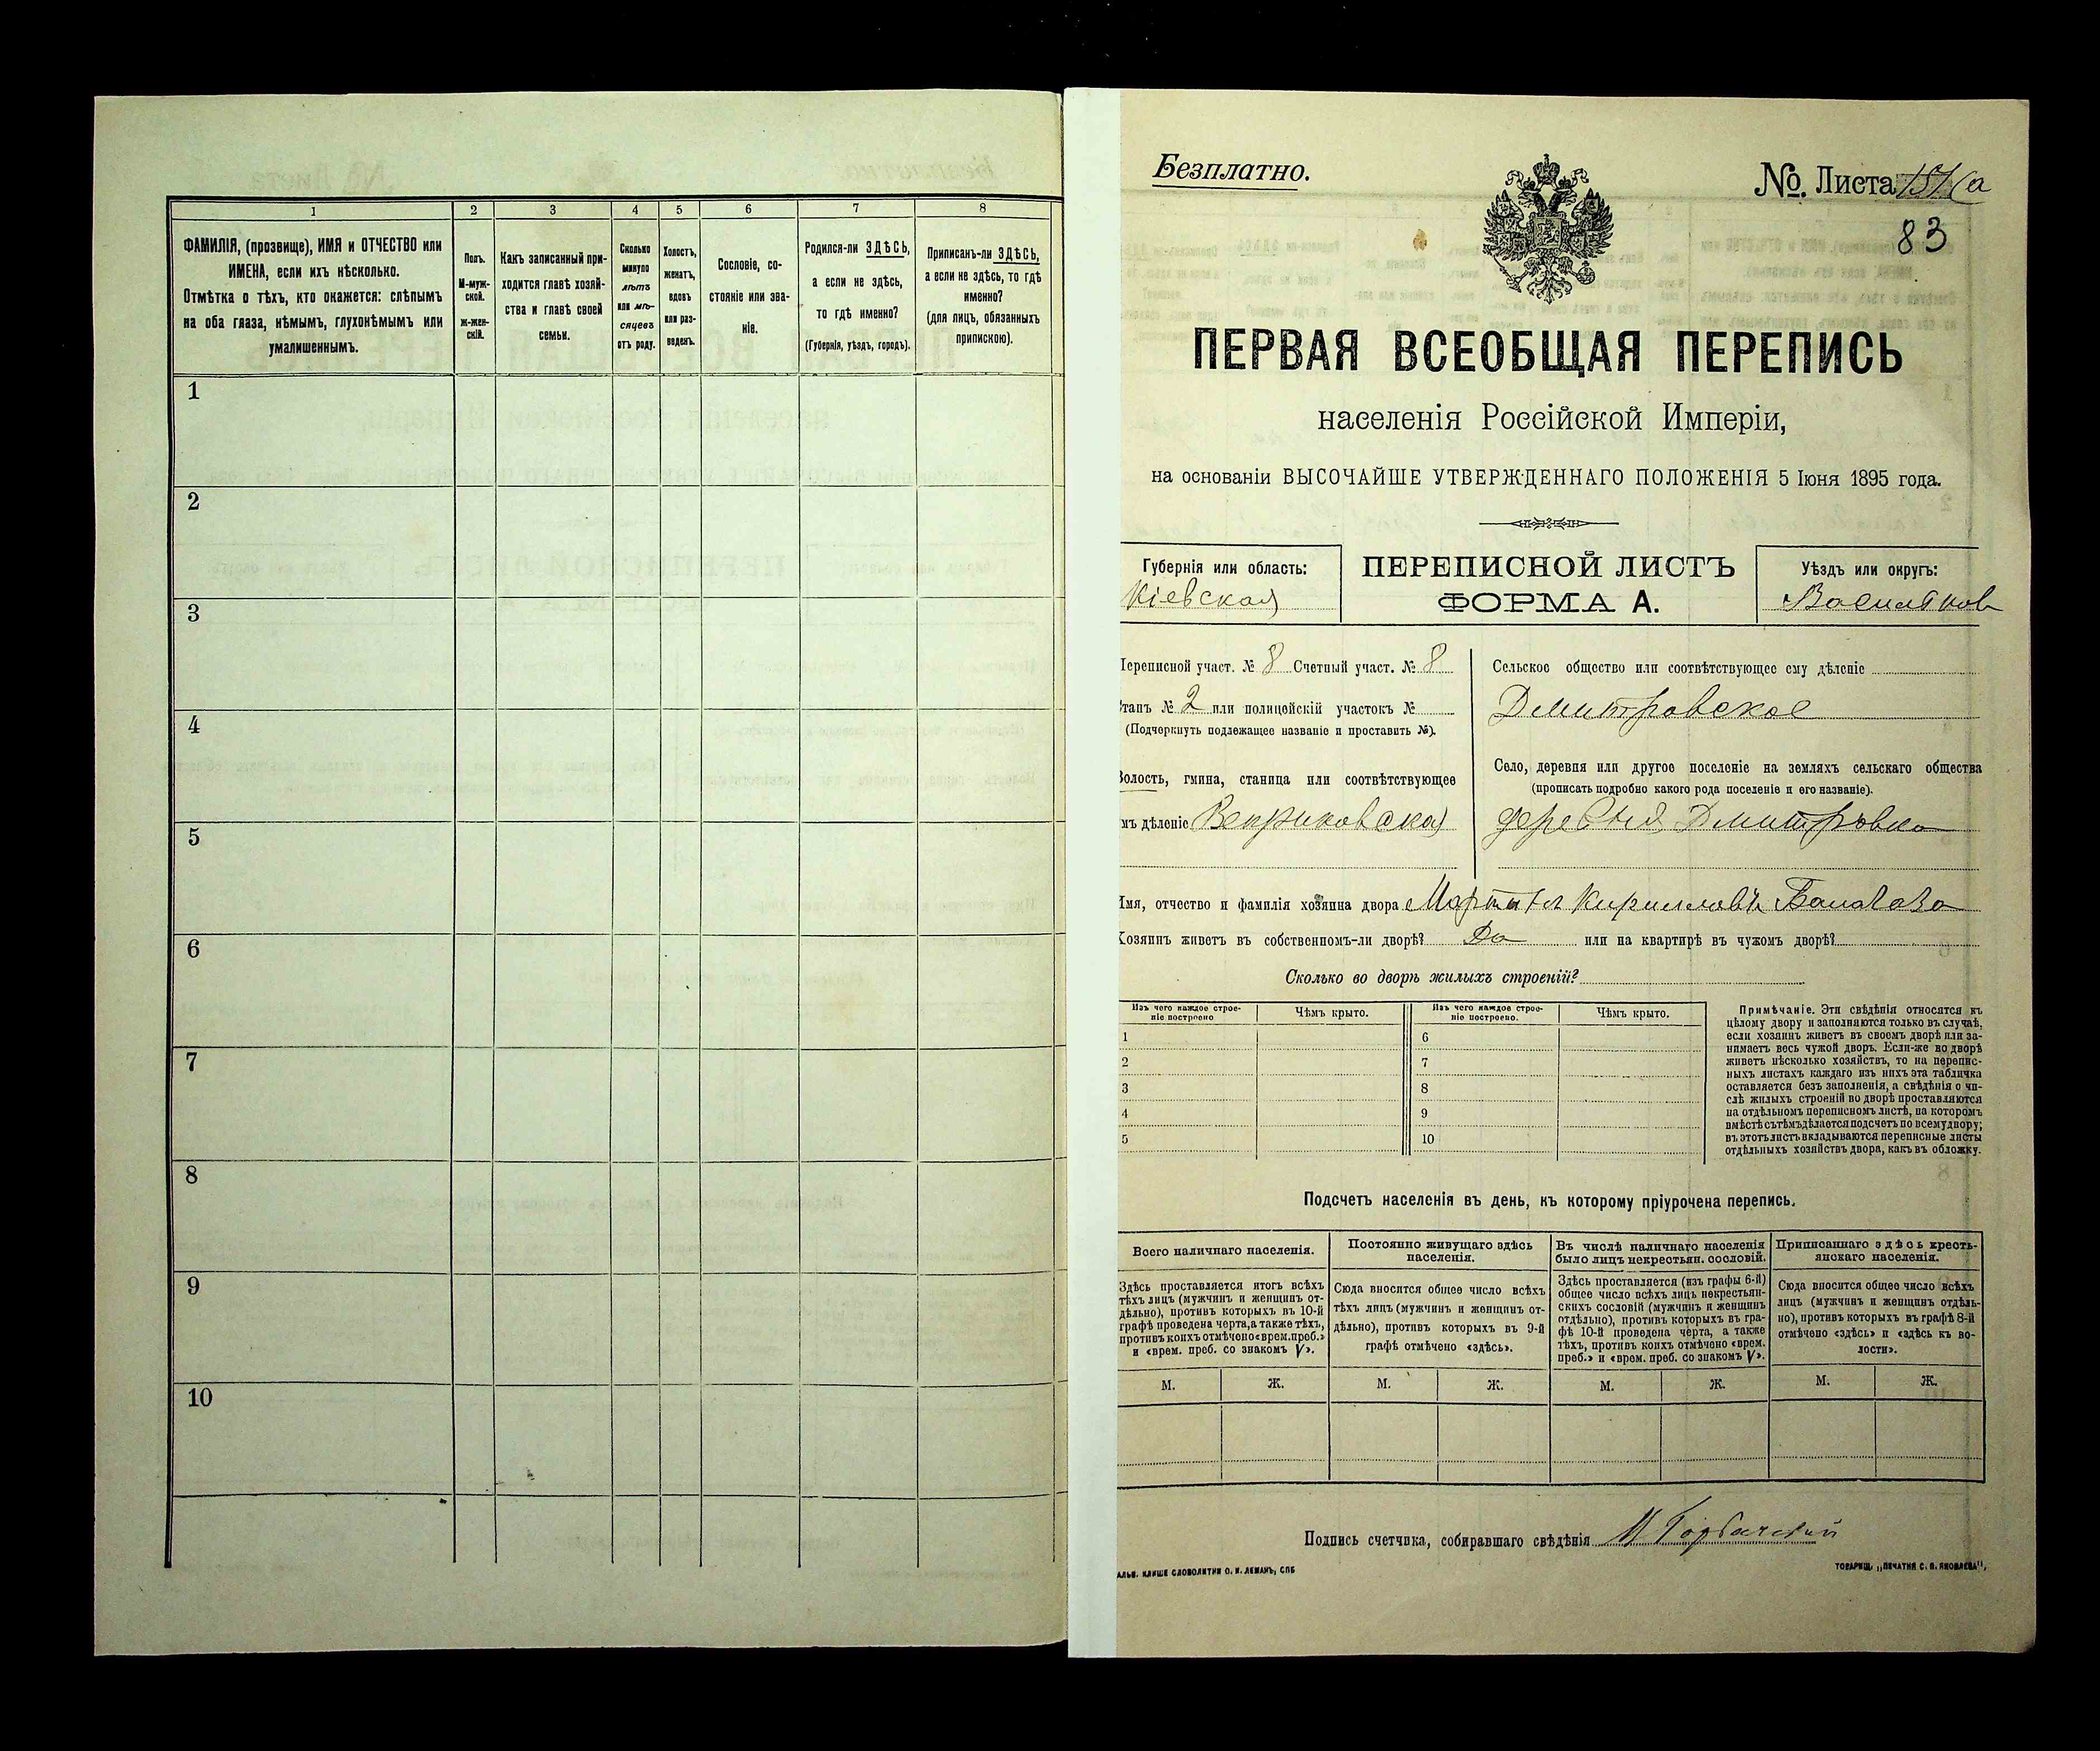 1 2 3 4 5 6 7 8
ФАМИЛІЯ, (прозвище), ИМЯ и ОТЧЕСТВО или
ИМЕНА, если ихъ нѣсколько.
Отмѣтка о тѣхъ, кто окажется: слѣпымъ
на оба глаза, нѣмымъ, глухонѣмымъ или
умалишеннымъ.
Полъ.
М-муж-
ской.
Ж-жен-
скій.
Какъ записанный при-
ходится главѣ хозяй-
ства и главѣ своей
семьи.
Сколько
минуло
лѣтъ
или мѣ-
сяцевъ
отъ роду.
Холостъ,
женатъ,
вдовъ
или раз-
веденъ.
Сословіе, со-
стояніе или зва-
ніе.
Родился-ли ЗДѢСЬ,
а если не здѣсь,
то гдѣ именно?
(Губернія, уѣздъ, городъ).
Приписанъ-ли ЗДѢСЬ,
а если не здѣсь, то гдѣ
именно?
(для лицъ, обязанныхъ
припискою).
1
2
3
4
5
6
7
8
9
10
Безплатно.
№ Листа 151(а
83
ПЕРВАЯ ВСЕОБЩАЯ ПЕРЕПИСЬ
населенія Россійской Имперіи,
на основаніи ВЫСОЧАЙШЕ УТВЕРЖДЕННАГО ПОЛОЖЕНІЯ 5 Іюня 1895 года.
Губернія или область:
Кіевская
ПЕРЕПИСНОЙ ЛИСТЪ
ФОРМА А.
Уѣздъ или округъ:
Васильков
Переписной участ. № 8 Счетный участ. № 8
Станъ № 2 или полицейскій участокъ №
(Подчеркнуть подлежащее названіе и проставить №).
Волость, гмина, станица или соотвѣтствующее
имъ дѣленіе Веприковская
Сельское общество или соотвѣтствующее ему дѣленіе
Дмитровское
Село, деревня или другое поселеніе на земляхъ сельскаго общества
(прописать подробно какого рода поселеніе и его названіе).
деревня Дмитровка
Имя, отчество и фамилія хозяина двора Кирилловъ
Хозяинъ живетъ въ собственномъ-ли дворѣ? Да или на квартирѣ въ чужомъ дворѣ?
Сколько во дворѣ жилыхъ строеній?
Изъ чего каждое строе-
ніе построено
Чѣмъ крыто.
Изъ чего каждое строе-
ніе построено.
Чѣмъ крыто.
1 6
2 7
3 8
4 9
5 10
Примѣчаніе. Эти свѣдѣнія относятся къ
цѣлому двору и заполняются только въ случаѣ,
если хозяинъ живетъ въ своемъ дворѣ или за-
нимаетъ весь чужой дворъ. Если-же во дворѣ
живетъ нѣсколько хозяйствъ, то на перепис-
ныхъ листахъ каждаго изъ нихъ эта табличка
оставляется безъ заполненія, а свѣдѣнія о чи-
слѣ жилыхъ строеній во дворѣ проставляются
на отдѣльномъ переписномъ листѣ, на которомъ
вмѣстѣ съ тѣмъ дѣлается подсчетъ по всему двору;
въ этотъ листъ вкладываются переписные листы
отдѣльныхъ хозяйствъ двора, какъ въ обложку.
Подсчетъ населенія въ день, къ которому пріурочена перепись.
Всего наличнаго населенія.
Здѣсь проставляется итогъ всѣхъ
тѣхъ лицъ (мужчинъ и женщинъ от-
дѣльно), противъ которыхъ въ 10-й
графѣ проведена черта, а также тѣхъ,
противъ коихъ отмѣчено «врем. преб.»
и «врем. преб. со знакомъ V».
Постоянно живущаго здѣсь
населенія.
Сюда вносится общее число всѣхъ
тѣхъ лицъ (мужчинъ и женщинъ от-
дѣльно), противъ которыхъ въ 9-й
графѣ отмѣчено «здѣсь».
Въ числѣ наличнаго населенія
было лицъ некрестьян. сословій.
Здѣсь проставляется (изъ графы 6-й)
общее число всѣхъ лицъ некрестьян-
скихъ сословій (мужчинъ и женщинъ
отдѣльно), противъ которыхъ въ гра-
фѣ 10-й проведена черта, а также
тѣхъ, противъ коихъ отмѣчено «врем.
преб.» и «врем. преб. со знакомъ V».
Приписаннаго здѣсь кресть-
янскаго населенія.
Сюда вносится общее число всѣхъ
лицъ (мужчинъ и женщинъ отдѣль-
но), противъ которыхъ въ графѣ 8-й
отмѣчено «здѣсь» и «здѣсь къ во-
лости».
М. Ж. М. Ж. М. Ж. М. Ж.
Подпись счетчика, собиравшаго свѣдѣнія М Горбачевскій
КЛИШЕ СЛОВОЛИТНИ О. И. ЛЕМАНЪ, СПБ
ТОВАРИЩ. „ПЕЧАТНЯ С. П. ЯКОВЛЕВА",